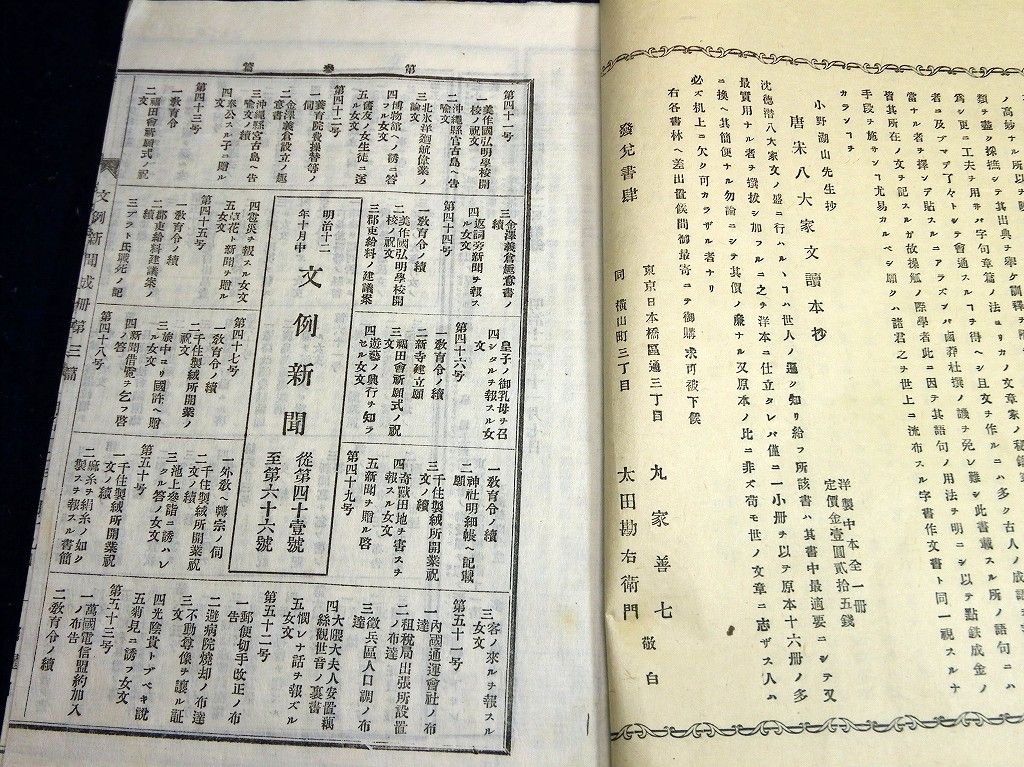 小野湖山先生抄
唐宋八大家文讀本抄
洋製中本全一冊
定價金壹圓貳拾五錢
沈德潜八大家文ノ盛ニ行ハルヽヿハ世人ノ遍ク知リ給フ所該書ハ其書中最適要ニシテ又
最實用ナル者ヲ撰拔シ加フルニ之ヲ洋本ニ仕立タレバ僅ニ一小册ヲ以テ原本十六册ノ多
ニ換ヘ其簡便ナル勿論ニシテ其價ノ廉ナル又原本ノ比ニ非ズ苟モ世ノ文章ニ志ザス人ハ
必ズ机上ニ欠ク可カラザル者ナリ
右各書林ヘ差出置候間御最寄ニテ御購求可被下候
發兌書肆
東京日本橋區通三丁目
丸家善七
同
橫山町三丁目
太田勘右衛門
敬白
第參篇
第四十一号
一美作國弘明學校開校ノ祝文
二沖繩縣宮古島ヘ告諭文
三北氷洋廻航偉業ノ論文
四博物館ヘノ誘ニ答フル女文
五優友ノ女生徒ニ送ル女文
第四十二号
一養育院教操替等ノ伺
二金澤義倉設立ノ趣意書
三沖繩縣宮古島ヘ告諭文ノ續
四奉公スル子ニ贈ル文
第四十三号
一敎育令
二福田會祈願式ノ祝文
三金澤義倉趣意書ノ續
四返詞旁新聞ヲ報スル女文
第四十四号
一敎育令ノ續
二美作國弘明學校開校ノ祝文
三郡吏給料ノ建議案
四雹災ヲ報スル女文
五草花ト新聞ヲ贈ル女文
第四十五号
一敎育令ノ續
二郡吏給料建議案ノ續
三アラト氏職死ノ記
四皇子ノ御乳母ヲ召シタルヲ報スル女文
第四十六号
一敎育令ノ續
二新寺建立願
三福田會祈願式ノ祝文
四遊藝ノ興行ヲ知ラセル女文
明治十二年十月中
文例新聞
從第四十壹號
至第六十六號
第四十七号
一敎育令ノ續
二千住製絨所開業ノ祝文
三旅中ヨリ國許ヘ贈ル女文
四新聞借覽ヲ乞フ啓ノ答
第四十八号
一敎育令ノ續
二神社明細帳ヘ記載願
三千住製絨所開業祝文ノ續
四寄獸田地ヲ害スヲ報スル女文
五新聞ヲ贈ル啓
第四十九号
一外敎ヘ轉宗ノ伺
二千住製絨所開業祝文ノ續
三池上參詣ニ誘ハレタル答ノ女文
第五十号
一千住製絨所開業祝文ノ續
二麻糸ヲ絹糸ノ如ク製スヲ報スル書簡
三客ノ來ルヲ報スル女文
第五十一号
一內國通運會社ノ布達
二租稅局出張所設置ノ布達
三徵兵區人口調ノ布達
四大隈大夫人安置稱絲觀世音ノ裏書
五憫レナ話ヲ報ズル女文
第五十二号
一郵便切手改正ノ布告
二避病院燒却ノ布達
三不動尊像ヲ讓ル証文
四光陰貴トブベキ說
五菊見ニ誘フ女文
第五十三号
一萬國電信盟約加入ノ布告
二敎育令ノ續
文例新聞 成册第三篇